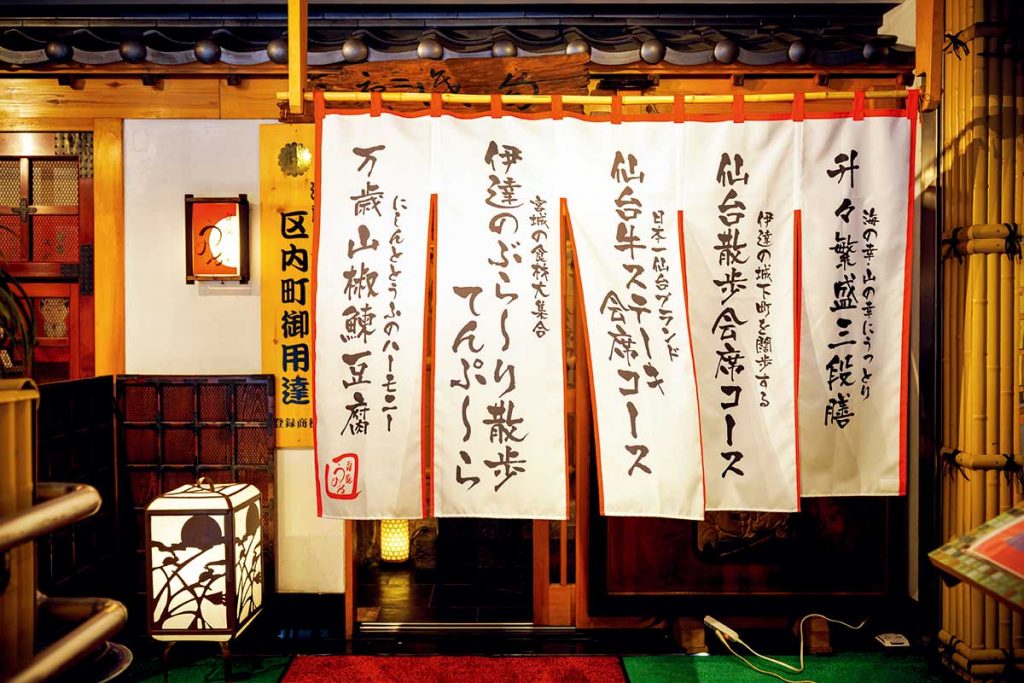 升々繁盛三段膳
海の幸山の幸にうっとり
仙台散歩会席コース
伊達の城下町を闊歩する
仙台牛ステーキ
会席コース
日本一仙台ブランド
伊達のぶら〜り散歩
てんぷ〜ら
宮城の食材大集合
万歳山椒鰊豆腐
にしんととうふのハーモニー
区内町御用達
登録商標